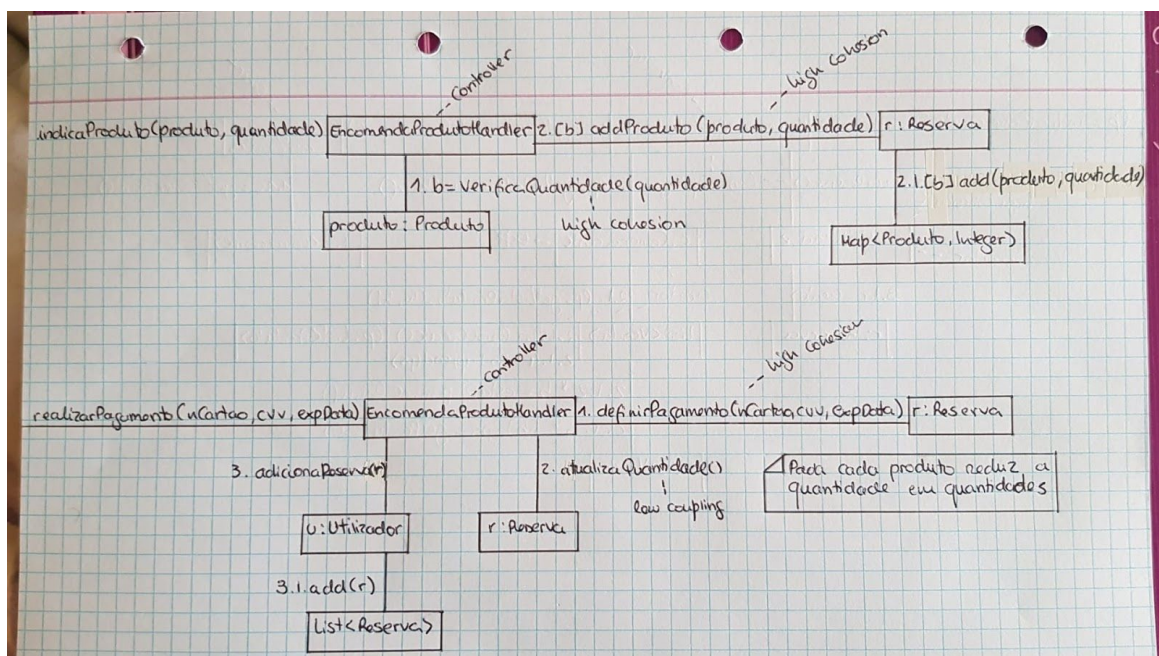 --controller
--high cohesion
indicaProduto(produto, quantidade) EncomendaProdutoHandler 2.[b] addProduto(produto, quantidade) r:Reserva
1. b=verificaQuantidade(quantidade)
2.1.[b] add(produto, quantidade)
produto: Produto
high cohesion
Map<Produto, Integer>
--controller
--high cohesion
realizarPagamento(nCartao, cvv, expData) EncomendaProdutoHandler 1. definirPagamento(nCartao, cvv, expData) r:Reserva
3. adicionaReserva(r)
2. atualizaQuantidade()
Para cada produto reduz a
quantidade em quantidades
low coupling
u:Utilizador
r:Reserva
3.1.add(r)
List<Reserva>